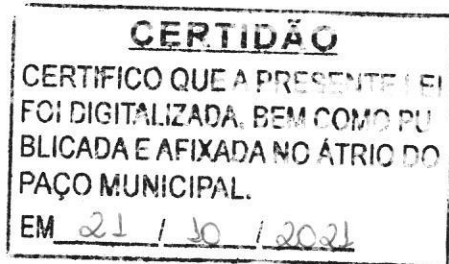 CERTIDÃO
CERTIFICO QUE A PRESENTE LEI
FOI DIGITALIZADA, BEM COMO PU
BLICADA E AFIXADA NO ÁTRIO DO
PAÇO MUNICIPAL.
EM 21 / 10 / 2021